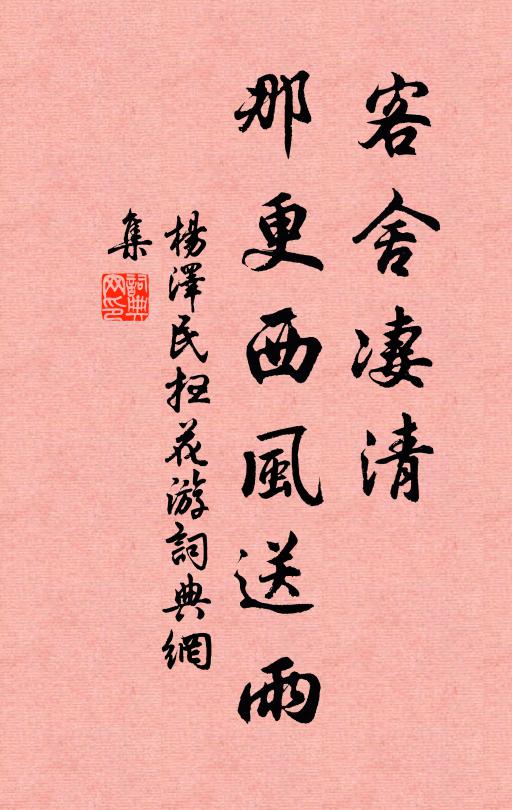 客舍凄清
那更西風送雨
楊澤民扫花游詞典網
集
詞典
网印